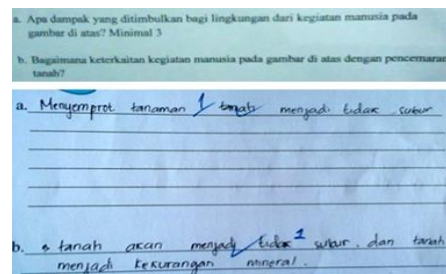 a. Apa dampak yang ditimbulkan bagi lingkungan dari kegiatan manusia pada
gambar di atas? Minimal 3
b. Bagaimana keterkaitan kegiatan manusia pada gambar di atas dengan pencemaran
tanah?
a. Menyemprot tanaman 1 tanah menjadi tidak subur
b. tanah akan menjadi tidak 1 subur. dan tanah
menjadi kekurangan mineral.